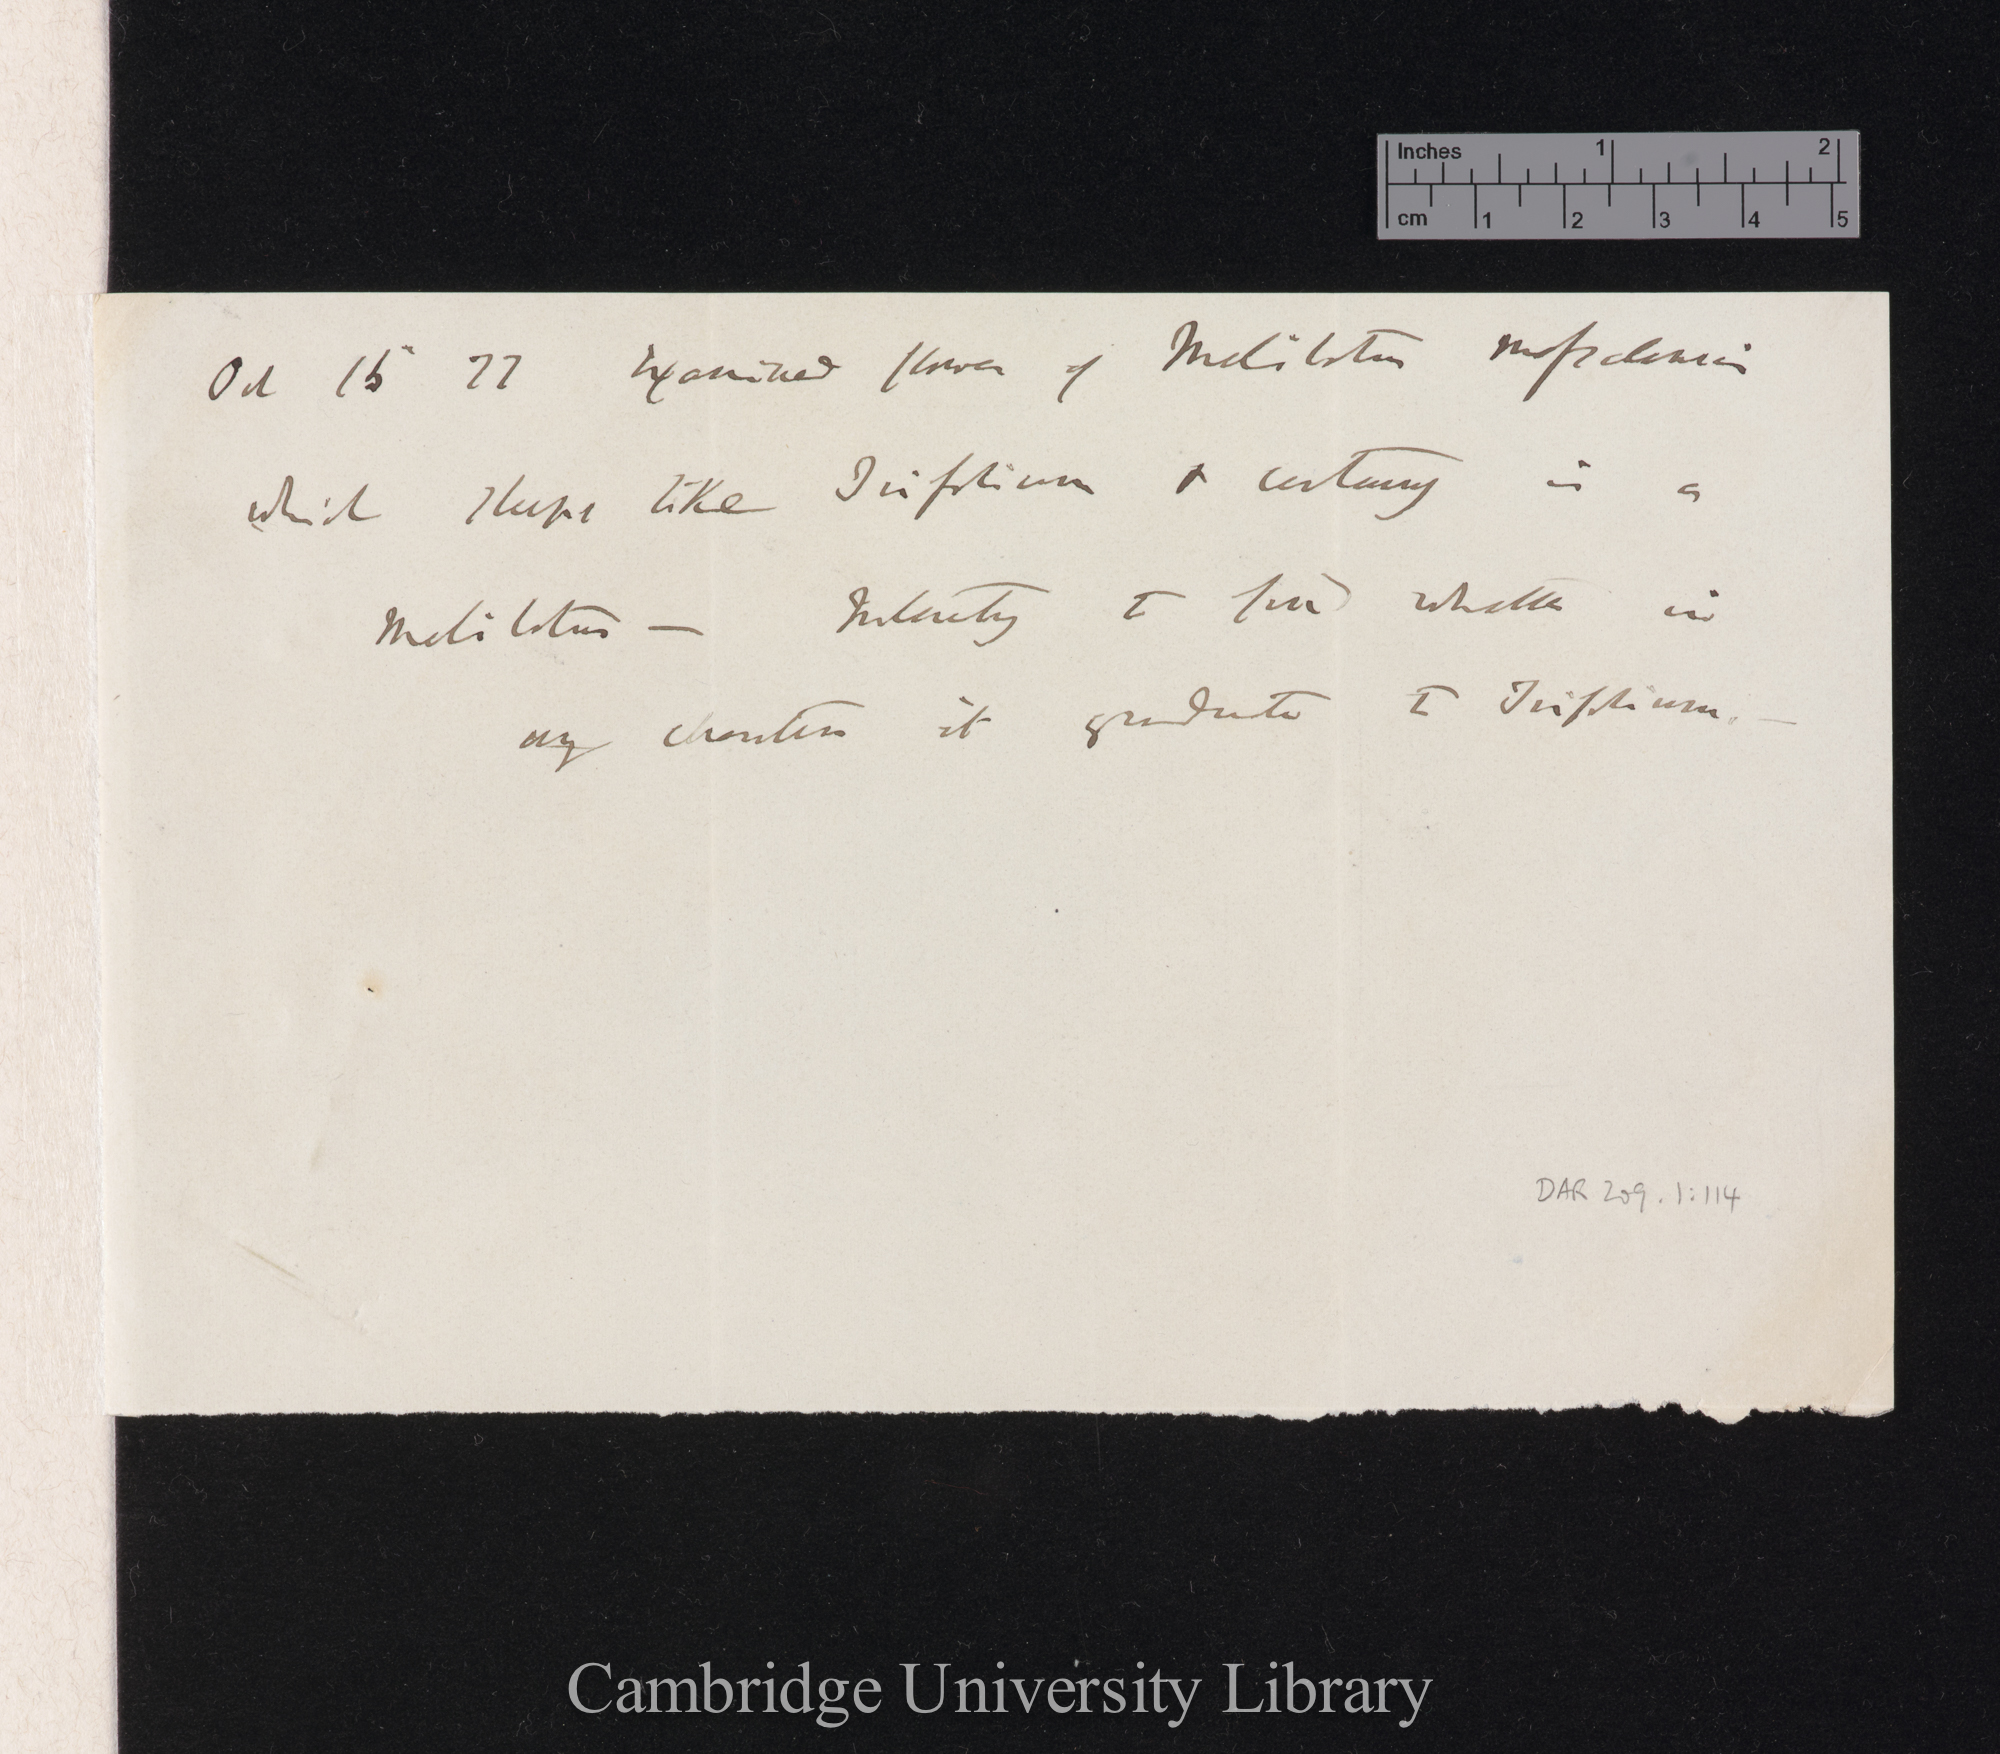 Inches 1 2
cm 1 2 3 4 5
Oct 15 77 Examined flower of Melilotus messanensis
which sleeps like Trifolium & certainly is a
Melilotus — to find whether in
any character it graduates to Trifolium. —
DAR 209.1:114
Cambridge University Library